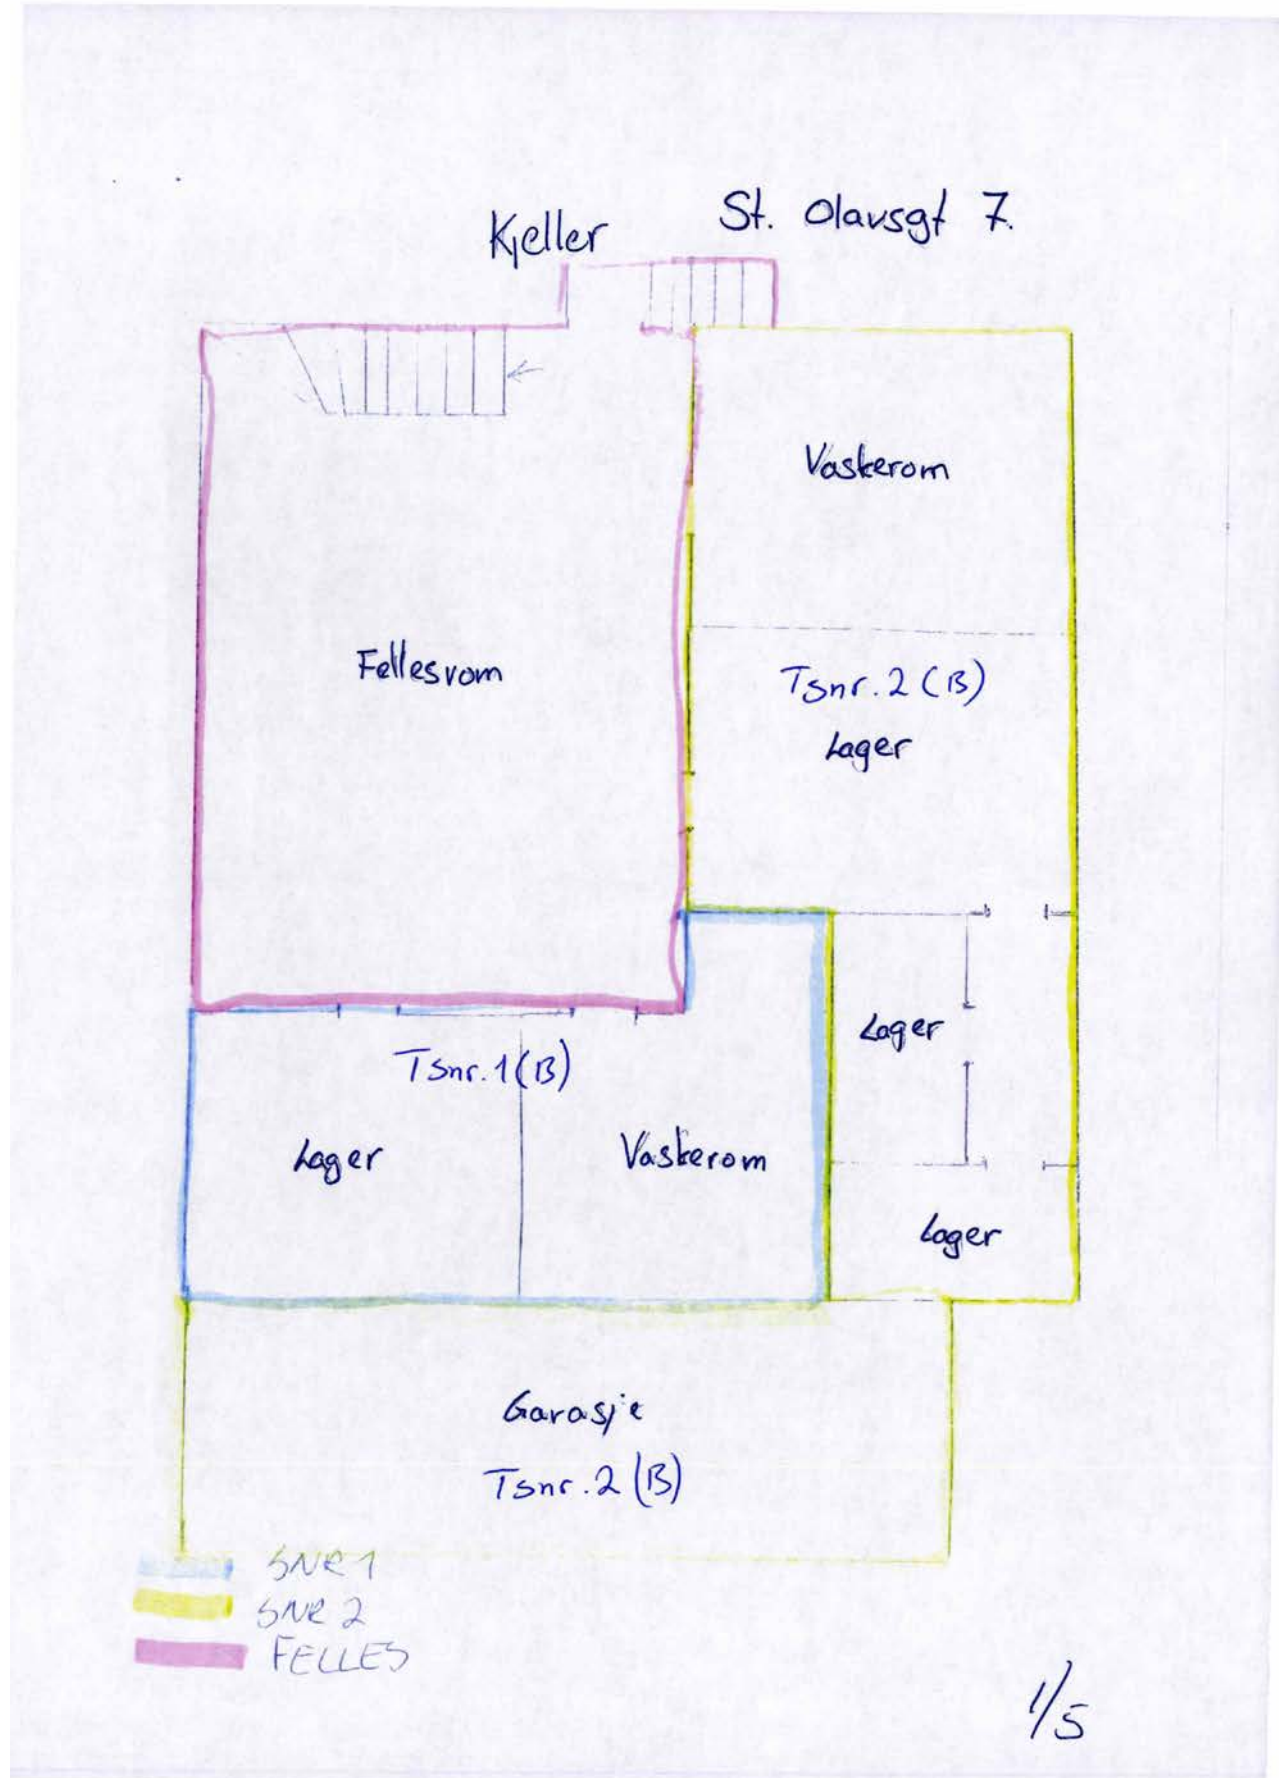 Kjeller
St. Olavsgt 7.
Vaskerom
Fellesrom
Tsnr. 2 (B)
Lager
Lager
Tsnr. 1 (B)
Lager
Vaskerom
Lager
Garasje
Tsnr. 2 (B)
SNR 1
SNR 2
FELLES
1/5